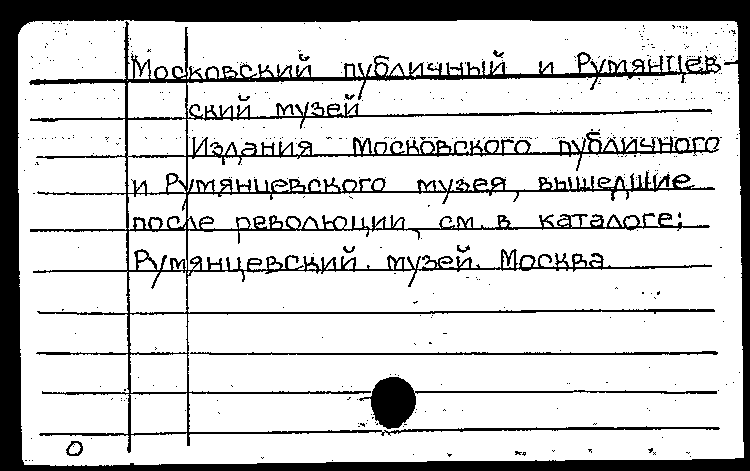 Московский публичный и Румянцев-
ский музей
Издания Московского публичного
и Румянцевского музея, вышедшие
после революции, см. в каталоге:
Румянцевский музей. Москва.
0